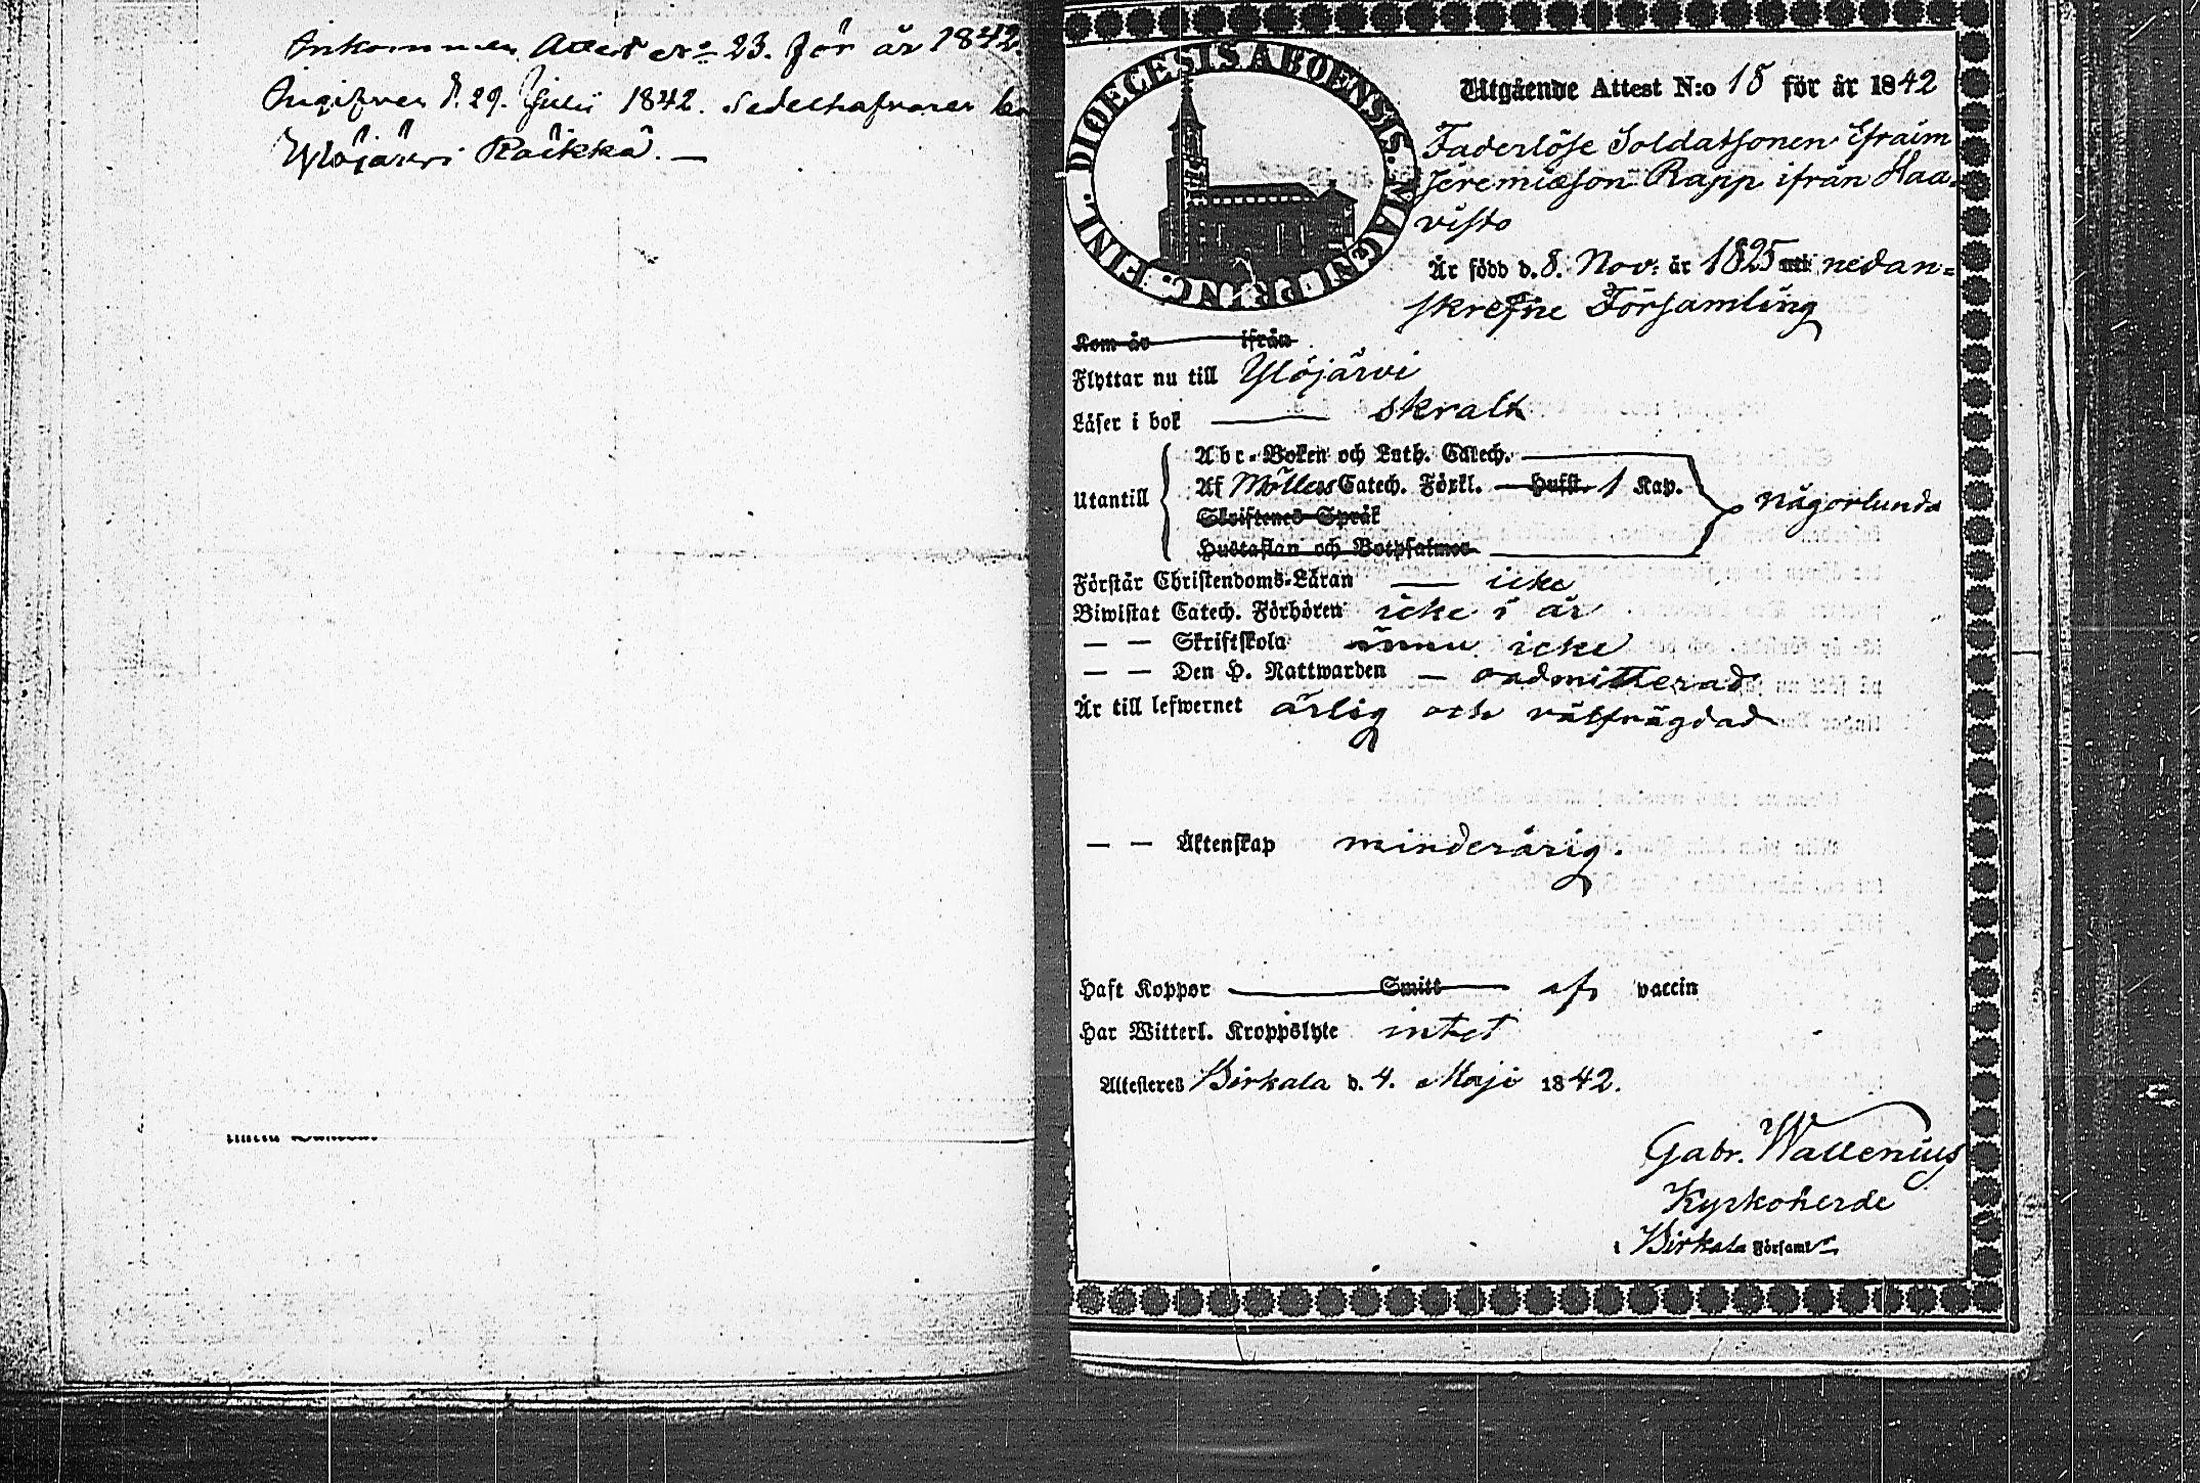 Inkommen Attest No 23. för år 1842.
Ingifven d. 29. Julii 1842. Sedelhafvaren
Ylöjärvi Räikkä. —
DIOECESIS ABOENSIS. MAGN. DUC. FINL.
Utgående Attest N:o 18 för år 1842
Faderlöse Soldatsonen Efraim
Jeremiæson Rapp ifrån Haa-
visto
Är född d. 8. Nov. år 1825 uti nedan=
skrefne Församling
Kom år ifrån
Flyttar nu till Ylöjärvi
Läser i bok — skralt
Abc-Boken och Luth. Catech.
Utantill Af Möllers Catech. Förkl. Hufst. 1 Kap. någorlunda
Skriftenes Språk
Hustaflan och Botpsalmer
Förstår Christendoms-Läran — icke
Biwistat Catech. Förhören icke i år
— — Skriftskola ännu icke
— — Den H. Nattwarden — oadmitterad
Är till lefwernet ärlig och välfrägdad
— — Äktenskap minderårig.
Haft Koppor Smitt af vaccin
Har Witterl. Kroppslyte intet
Attesteres Birkala d. 4. Maji 1842.
Gabr. Wallenius
Kyrkoherde
i Birkala Församl